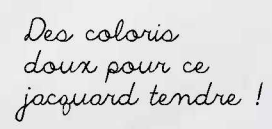 Des coloris
doux pour ce
jacquard tendre !